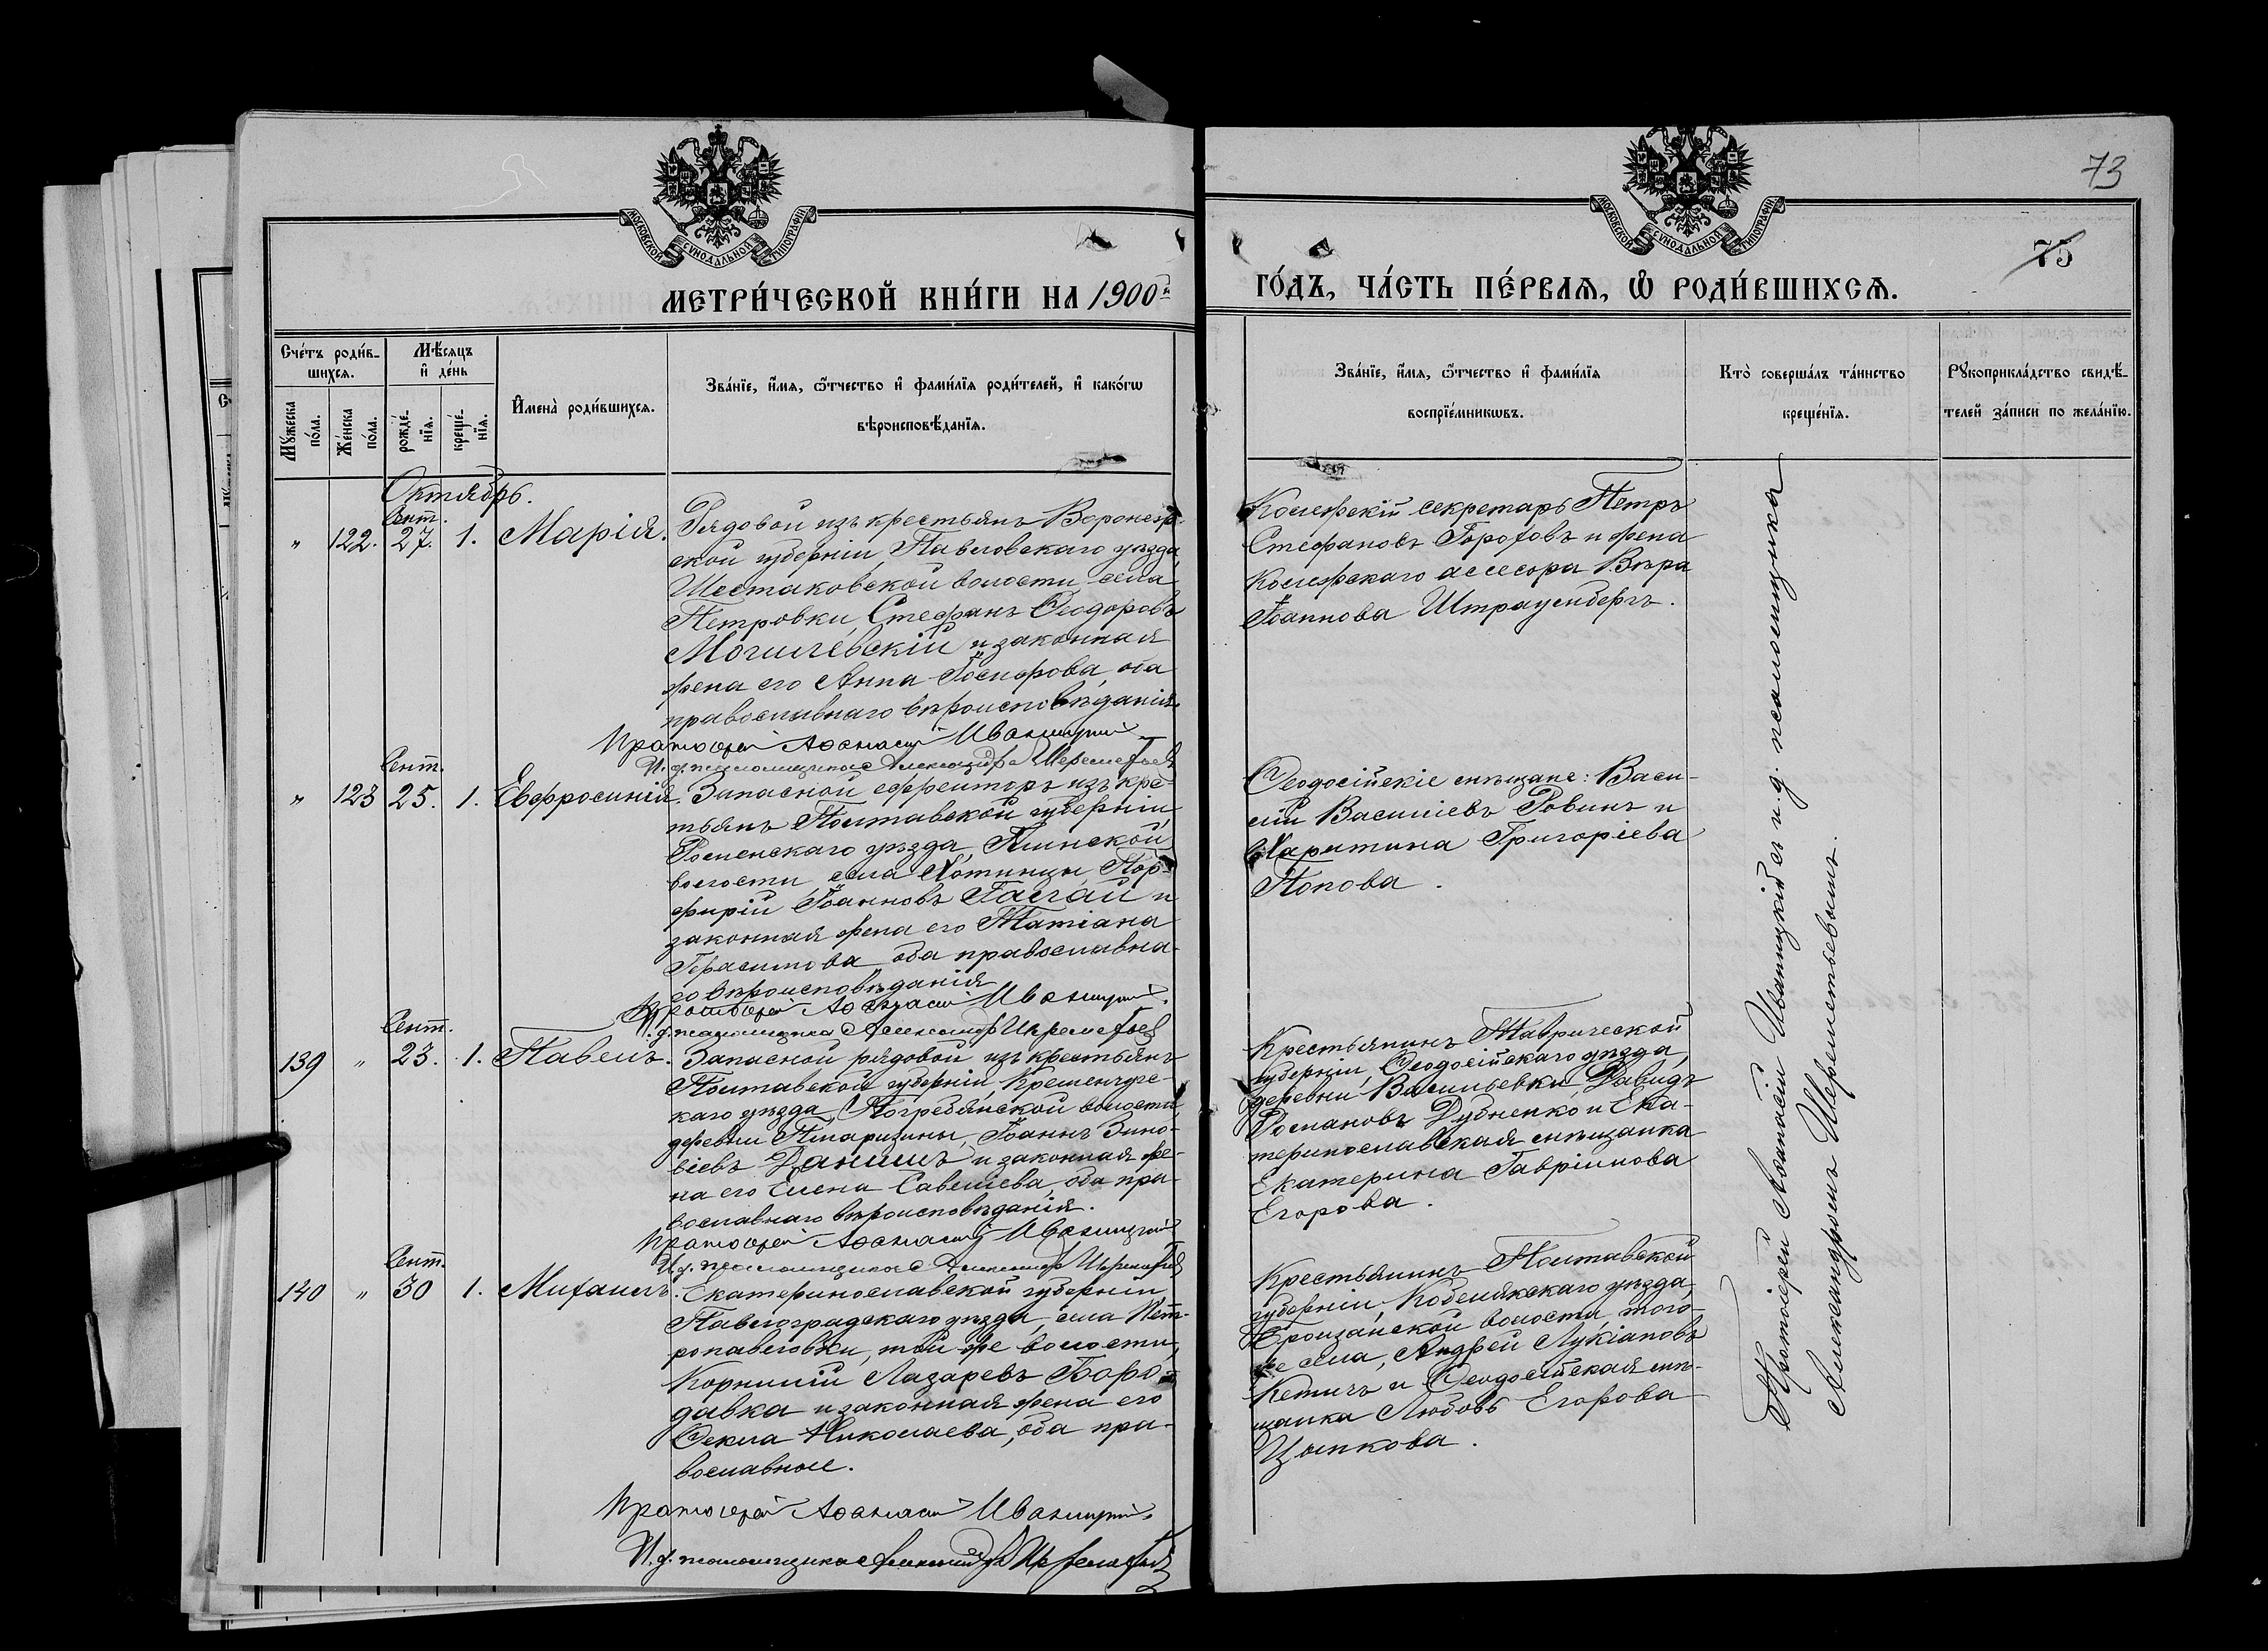 73
МОСКОВСКОЙ СѴНОДАЛЬНОЙ ТИПОГРАФІИ
МОСКОВСКОЙ СѴНОДАЛЬНОЙ ТИПОГРАФІИ
75
МЕТРИ́ЧЕСКОЙ КНИ́ГИ НА 1900й
ГО́ДЪ, ЧА́СТЬ ПЕ́РВАѦ, Ѡ҆ РОДИ́ВШИХСѦ.
Сче́тъ роди́в-
шихсѧ.
Мѣ́сѧцъ
и҆ де́нь
Мꙋ́жеска
по́ла.
Же́нска
по́ла.
рожде́-
нїѧ.
креще́-
нїѧ.
И҆мена̀ роди́вшихсѧ.
Зва́нїе, и҆́мѧ, ѻ҆́тчество и҆ фами́лїѧ роди́телей, и҆ како́гѡ
вѣроисповѣ́данїѧ.
Зва́нїе, и҆́мѧ, ѻ҆́тчество и҆ фами́лїѧ
воспрїе́мникѡвъ.
Кто̀ соверша́лъ та́инство
креще́нїѧ.
Рꙋкоприкла́дство свидѣ́-
телей за́писи по жела́нїю.
Октябрь.
Сент.
" 122. 27. 1. Марія.
Рядовой изъ крестьянъ Воронеж-
ской губерніи, Павловскаго уѣзда,
Шестаковской волости, села
Петровки, Стефанъ Ѳеодоровъ
Могилевскій и законная
жена его Анна Іосифова, оба
православнаго вѣроисповѣданія.
Протоіерей Аѳанасій Иваницкій
И. д. псаломщика Александръ Шереметьев
Коллежскій секретарь Петръ
Стефановъ Гороховъ и жена
Коллежскаго ассесора Вѣра
Іоаннова Штраусибергъ.
Сент.
" 123 25. 1. Евфросинія.
Запасной ефрейторъ изъ крес-
тьянъ Полтавской губерніи,
Роменскаго уѣзда,
волости, села Хоминцы, Пор-
фирій Іоанновъ и
законная жена его Татіана
Герасимова, оба православна-
го вѣроисповѣданія
Протоіерей Аѳанасій Иваницкій.
И. д. псаломщика Александръ Шереметьев
Ѳеодосійскіе мѣщане: Васи-
лій Васильевъ Ровинъ и
Харитина Григоріева
Попова.
Сент.
139 " 23. 1. Павелъ.
Запасной рядовой изъ крестьянъ
Полтавской губерніи, Кременчугс-
каго уѣзда, Погребянской волости,
деревни Іоаннъ Зино-
віевъ Данишъ и законная же-
на его Елена Савельева, оба пра-
вославнаго вѣроисповѣданія.
Протоіерей Аѳанасій Иваницкій
И. д. псаломщика Александръ Шереметьев
Крестьянинъ Таврической
губерніи, Ѳеодосійскаго уѣзда,
деревни Васильевки Давидъ
Романовъ Дубненко и Ека-
теринославская мѣщанка
Екатерина Гавріилова
Егорова.
Сент.
140 " 30 1. Михаилъ.
Екатеринославской губерніи
Павлоградскаго уѣзда, села Пет-
ропавловки, той же волости,
Корнилій Лазаревъ Боро-
давка и законная жена его
Ѳекла Николаева, оба пра-
вославные.
Протоіерей Аѳанасій Иваницкій.
И. д. псаломщика Александръ Шереметьев
Крестьянинъ Полтавской
губерніи, Кобелякскаго уѣзда,
волости, того-
же села, Андрей Лукіановъ
Кетичъ и Ѳеодосійская мѣ-
щанка Любовь Егорова
Цыпкова.
Протоіерей Аѳанасій Иваницкій съ и. д. псаломщика
Александромъ Шереметьевымъ.